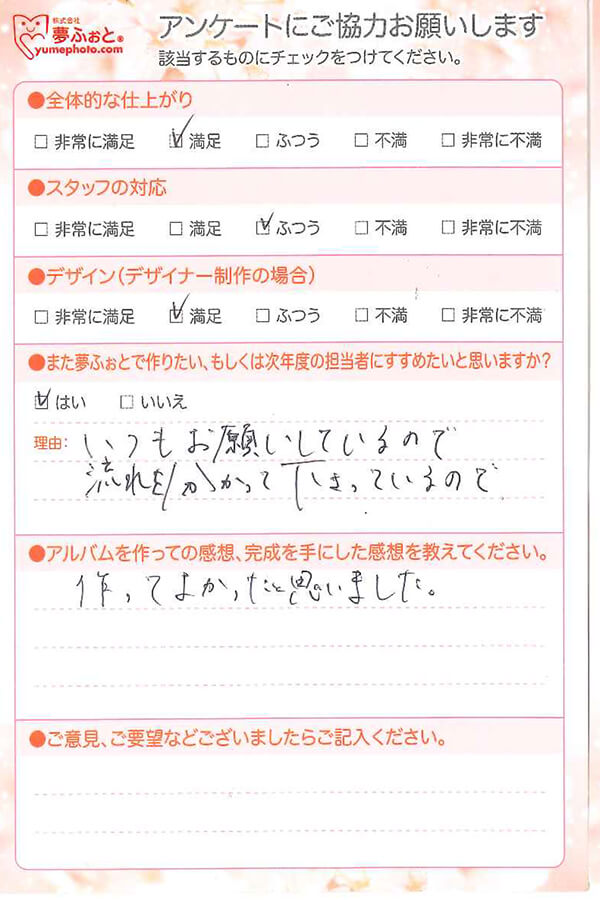 株式会社
夢ふぉと®
yumephoto.com
アンケートにご協力お願いします
該当するものにチェックをつけてください。
●全体的な仕上がり
□ 非常に満足 ☑ 満足 □ ふつう □ 不満 □ 非常に不満
●スタッフの対応
□ 非常に満足 □ 満足 ☑ ふつう □ 不満 □ 非常に不満
●デザイン(デザイナー制作の場合)
□ 非常に満足 ☑ 満足 □ ふつう □ 不満 □ 非常に不満
●また夢ふぉとで作りたい、もしくは次年度の担当者にすすめたいと思いますか?
☑ はい □ いいえ
理由: いつもお願いしているので
流れを分かって下さっているので
●アルバムを作っての感想、完成を手にした感想を教えてください。
作ってよかったと思いました。
●ご意見、ご要望などございましたらご記入ください。